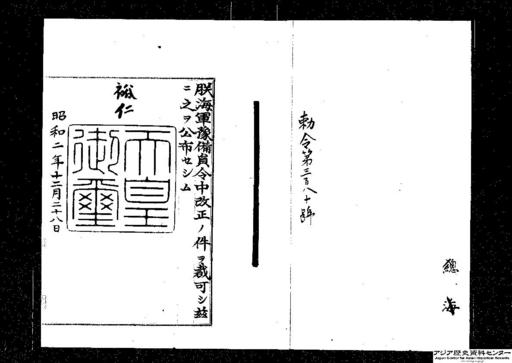 勅令第三百八十號
總海
朕海軍豫備員令中改正ノ件ヲ裁可シ茲
ニ之ヲ公布セシム
裕仁
天皇御璽
昭和二年十二月二十八日
アジア歴史資料センター
Japan Center for Asian Historical Records